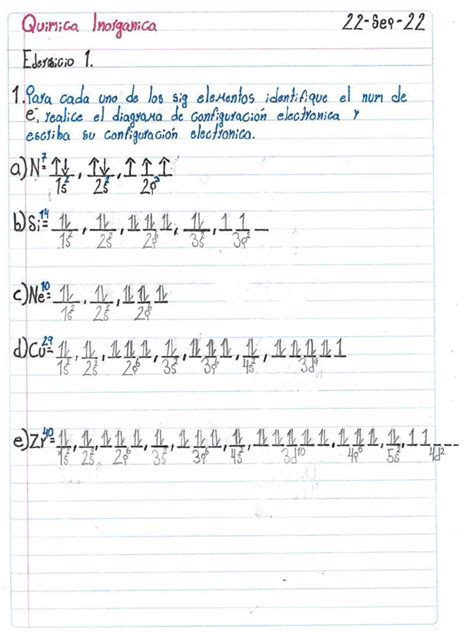 Quimica Inorganica 22-Sep-22
Ejercicio 1.
1. Para cada uno de los sig elementos identifique el num de
e⁻, realice el diagrama de configuración electronica y
escriba su configuración electronica.
a) N⁷= ↑↓, ↑↓, ↑ ↑ ↑
1s² 2s² 2p³
b) Si¹⁴= ⥮, ⥮, ⥮ ⥮ ⥮, ⥮, 1 1 _
1s² 2s² 2p⁶ 3s² 3p²
c) Ne¹⁰= ⥮, ⥮, ⥮ ⥮ ⥮
1s² 2s² 2p⁶
d) Cu²⁹= ⥮, ⥮, ⥮ ⥮ ⥮, ⥮, ⥮ ⥮ ⥮, ⥮, ⥮ ⥮ ⥮ ⥮ 1
1s² 2s² 2p⁶ 3s² 3p⁶ 4s² 3d⁹
e) Zr⁴⁰= ⥮, ⥮, ⥮ ⥮ ⥮, ⥮, ⥮ ⥮ ⥮, ⥮, ⥮ ⥮ ⥮ ⥮ ⥮, ⥮ ⥮ ⥮, ⥮, 1 1 _ _ _
1s² 2s² 2p⁶ 3s² 3p⁶ 4s² 3d¹⁰ 4p⁶ 5s² 4d²